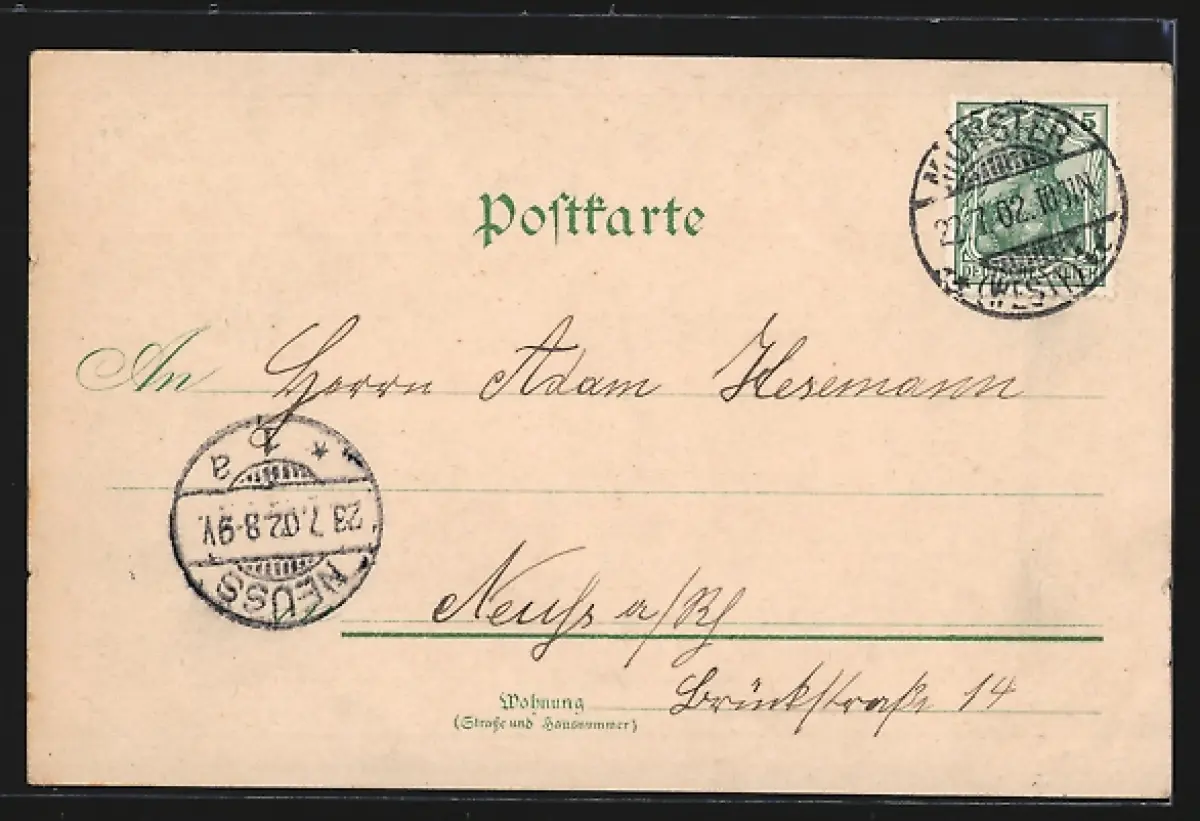 5
MÜNSTER
22.7.02.10-11N
* (WESTF.)
Postkarte
An Herrn Adam Hesemann
* 2 a
23.7.02.8-9V.
NEUSS
Neuß a/Rh
Wohnung
(Straße und Hausnummer)
Brückstraße 14